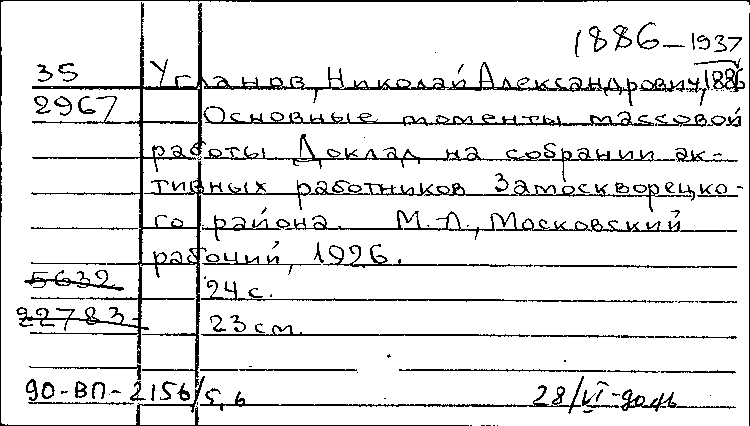 1886-1937
35 Угланов, Николай Александрович, 1886
2967 Основные моменты массовой
работы. Доклад на собрании ак-
тивных работников Замоскворецко-
го района. М.-Л., Московский
рабочий, 1926.
5632 24 с.
22783 23 см.
90-ВП-2156/5,6 28/VI-